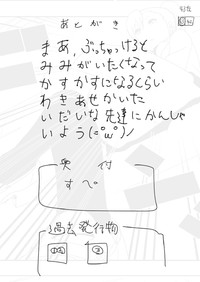 あとがき
まあ、ぶっちゃけると
みみがいたくなって
かすかすになるくらい
わきあせかいた
いだいな先達にかんしゃ
いよう(=ﾟωﾟ)ﾉ
奥付
すぺ。
過去発行物